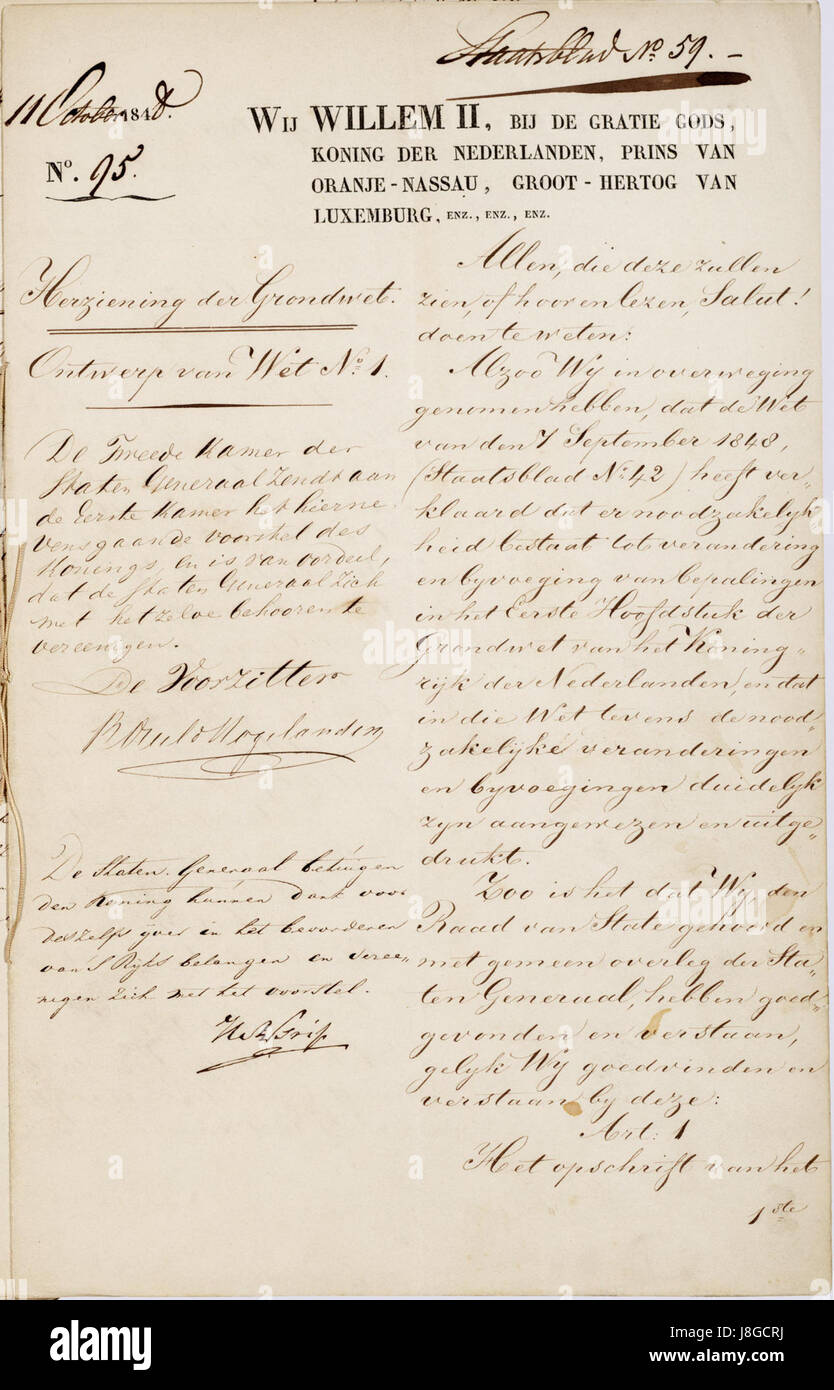 Staatsblad No. 59. –
11 October 1848.
No. 95.
WIJ WILLEM II, BIJ DE GRATIE GODS,
KONING DER NEDERLANDEN, PRINS VAN
ORANJE-NASSAU, GROOT-HERTOG VAN
LUXEMBURG, ENZ., ENZ., ENZ.
Herziening der Grondwet.
Ontwerp van Wet No. 1.
De Tweede Kamer der
Staten Generaal zendt aan
de Eerste Kamer het hierne
vensgaande voorstel des
Konings, en is van oordeel,
dat de Staten Generaal zich
met hetzelve behooren te
vereenigen.
De Voorzitter
De Staten Generaal betuigen
den Koning hunnen dank voor
deszelfs yver in het bevorderen
van 's Ryks belangen en veree-
nigen zich met het voorstel.
Allen, die deze zullen
zien, of hooren lezen, Salut!
doen te weten:
Alzoo Wy in overweging
genomen hebben, dat de Wet
van den 7 September 1848,
(Staatsblad No. 42) heeft ver-
klaard dat er noodzakelyk
heid bestaat tot verandering
en byvoeging van bepalingen
in het Eerste Hoofdstuk der
Grondwet van het Koning-
ryk der Nederlanden, en dat
in die Wet tevens de nood-
zakelyke veranderingen
en byvoegingen duidelyk
zyn aangewezen en uitge-
drukt.
Zoo is het dat Wy, den
Raad van State gehoord en
met gemeen overleg der Sta-
ten Generaal, hebben goed-
gevonden en verstaan,
gelyk Wy goedvinden en
verstaan by deze:
Art: 1
Het opschrift van het
1ste
alamy
alamy
Image ID: J8GCRJ
www.alamy.com